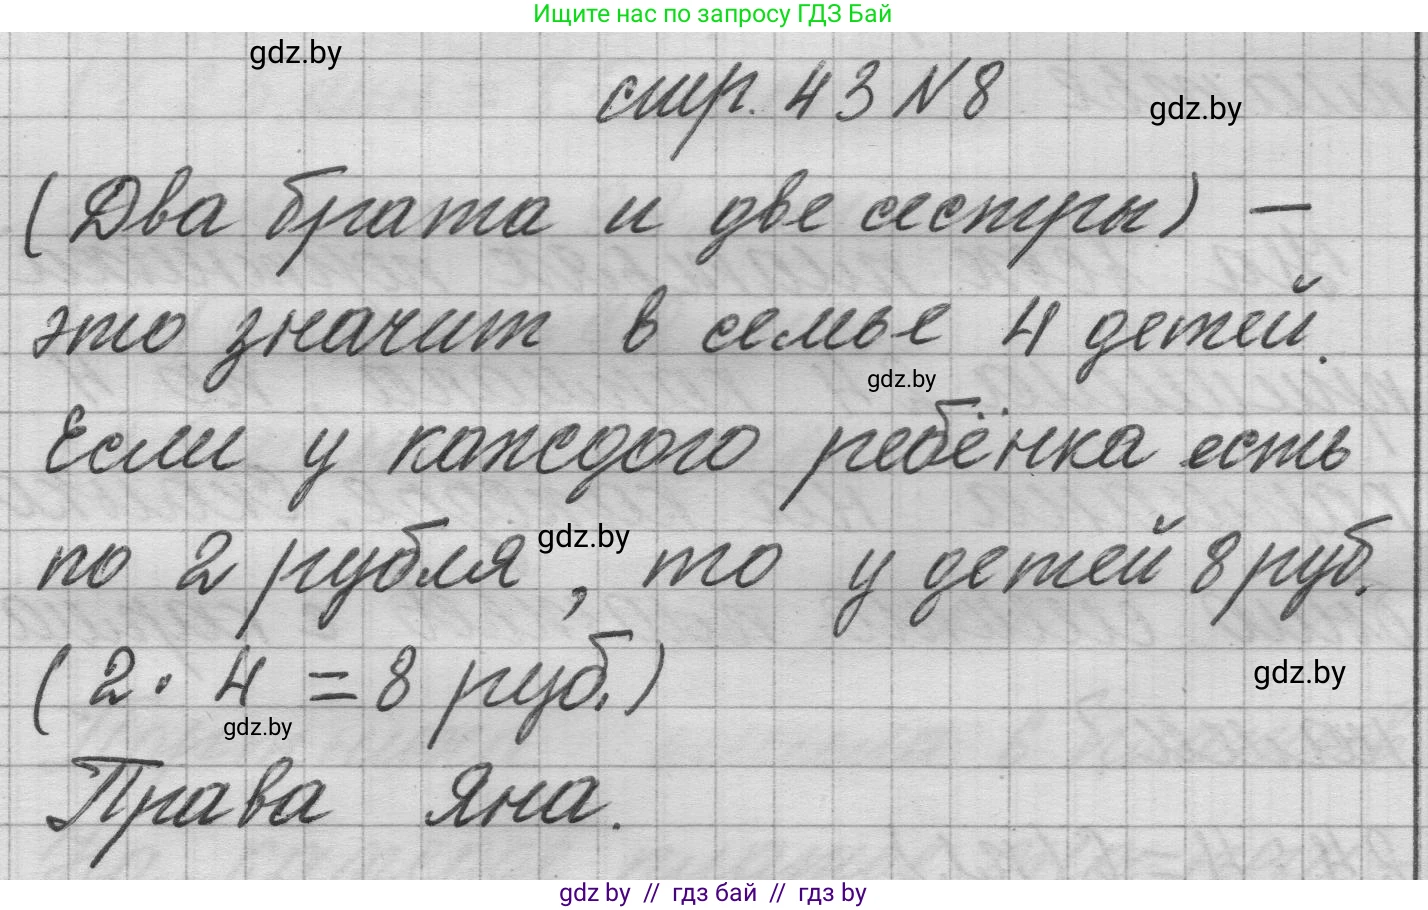 Ищите нас по запросу ГДЗ Бай
gdz.by
стр. 43 № 8
gdz.by
(Два брата и две сестры) –
это значит в семье 4 детей.
gdz.by
Если у каждого ребёнка есть
по 2 рубля, то у детей 8 руб.
gdz.by
(2 · 4 = 8 руб.)
gdz.by
gdz.by
Права Яна.
gdz by // гдз бай // гдз by